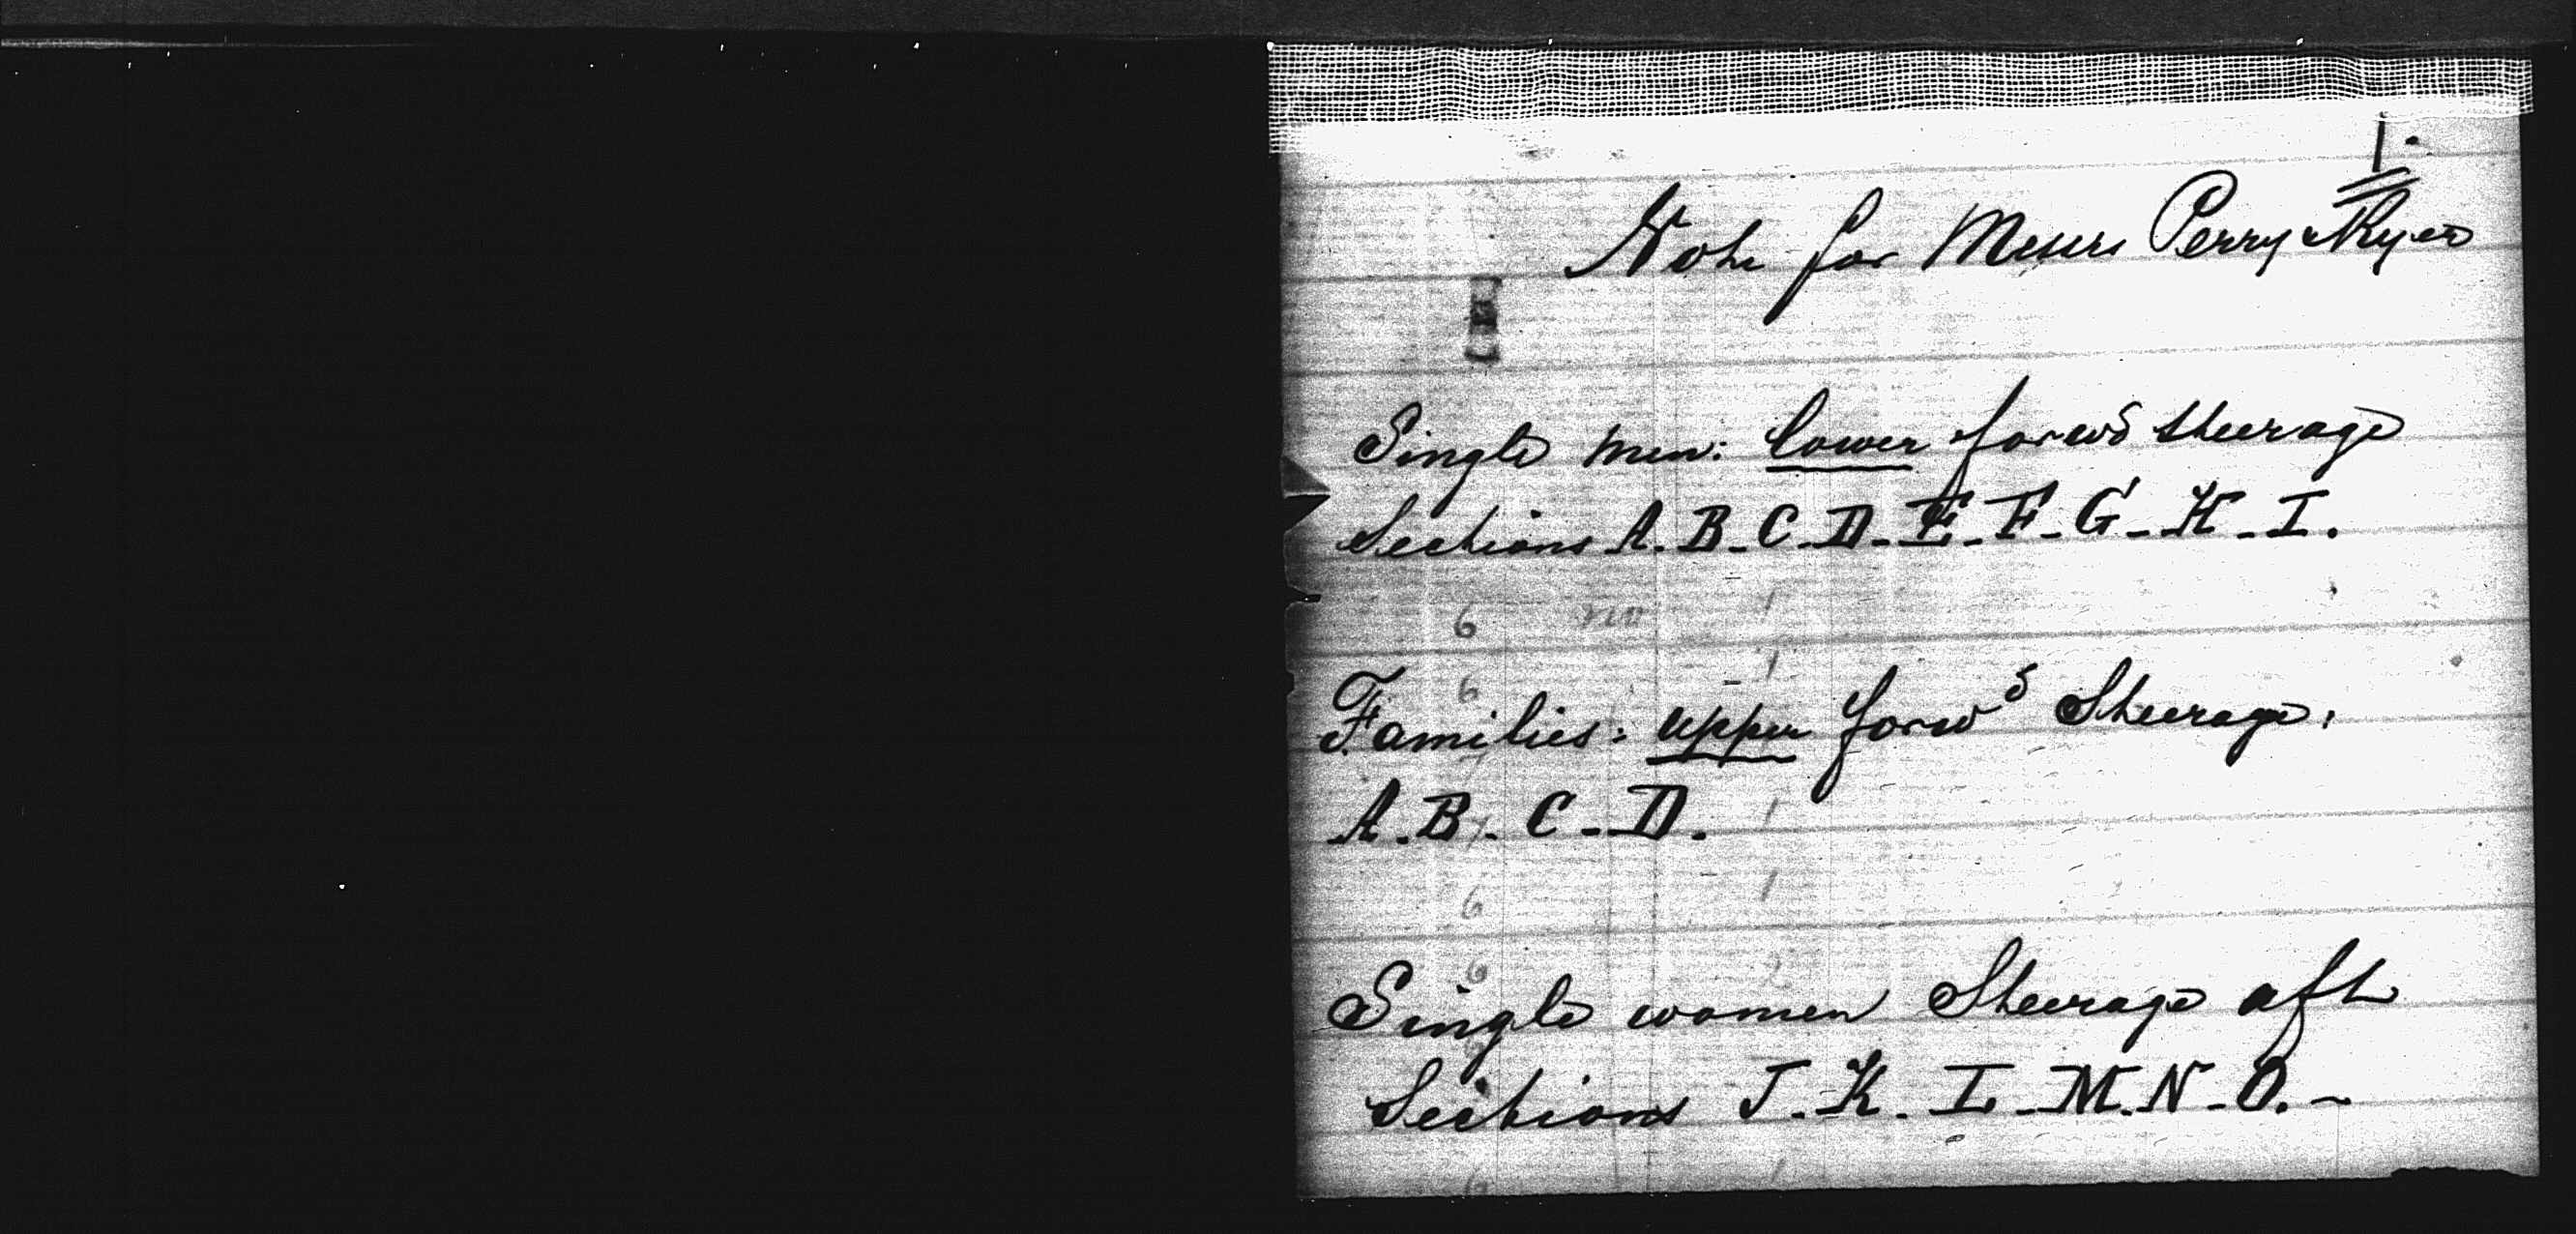 1.
Note for Messrs Perry & Ryer
Single men: lower forwd steerage
Sections A. B - C - D - E - F - G - H - I.
Families: upper forwd Steerage:
A. B - C - D.
Single women Steerage aft
Sections J. K. L - M. N - O. ~